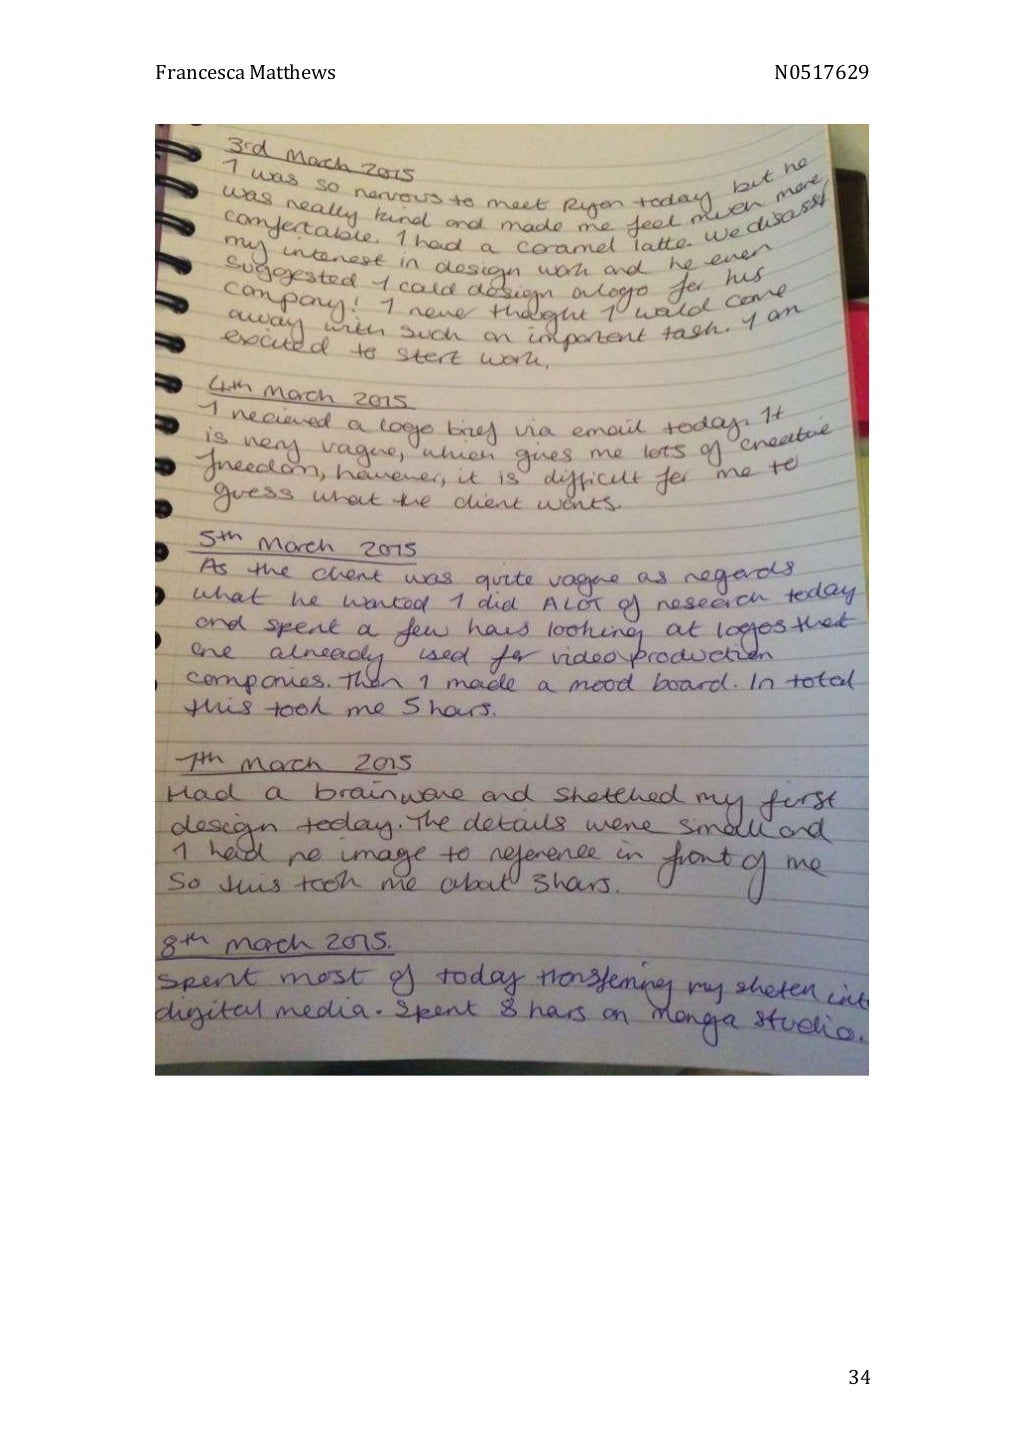 Francesca Matthews N0517629
3rd March 2015
I was so nervous to meet Ryan today but he
was really kind and made me feel much more
comfortable. I had a caramel latte. We disasst
my interest in design work and he even
suggested I cold design a logo for his
company! I never thought I wold come
away with such an important task. I am
excited to start work.
4th March 2015
I recieved a logo brief via email today. It
is very vague, which gives me lots of creative
freedom, however, it is difficult for me to
guess what the client wants.
5th March 2015
As the client was quite vague as regards
what he wanted I did A LOT of research today
and spent a few hars looking at logos that
are already used for video production
companies. Then I made a mood board. In total
this took me 5 hars.
7th March 2015
Had a brainwave and sketched my first
design today. The details were small and
I had no image to reference in front of me
So this took me abat 3 hars.
8th March 2015.
Spent most of today transferring my sketch int
digital media. Spent 8 hars on Manga Studio.
34